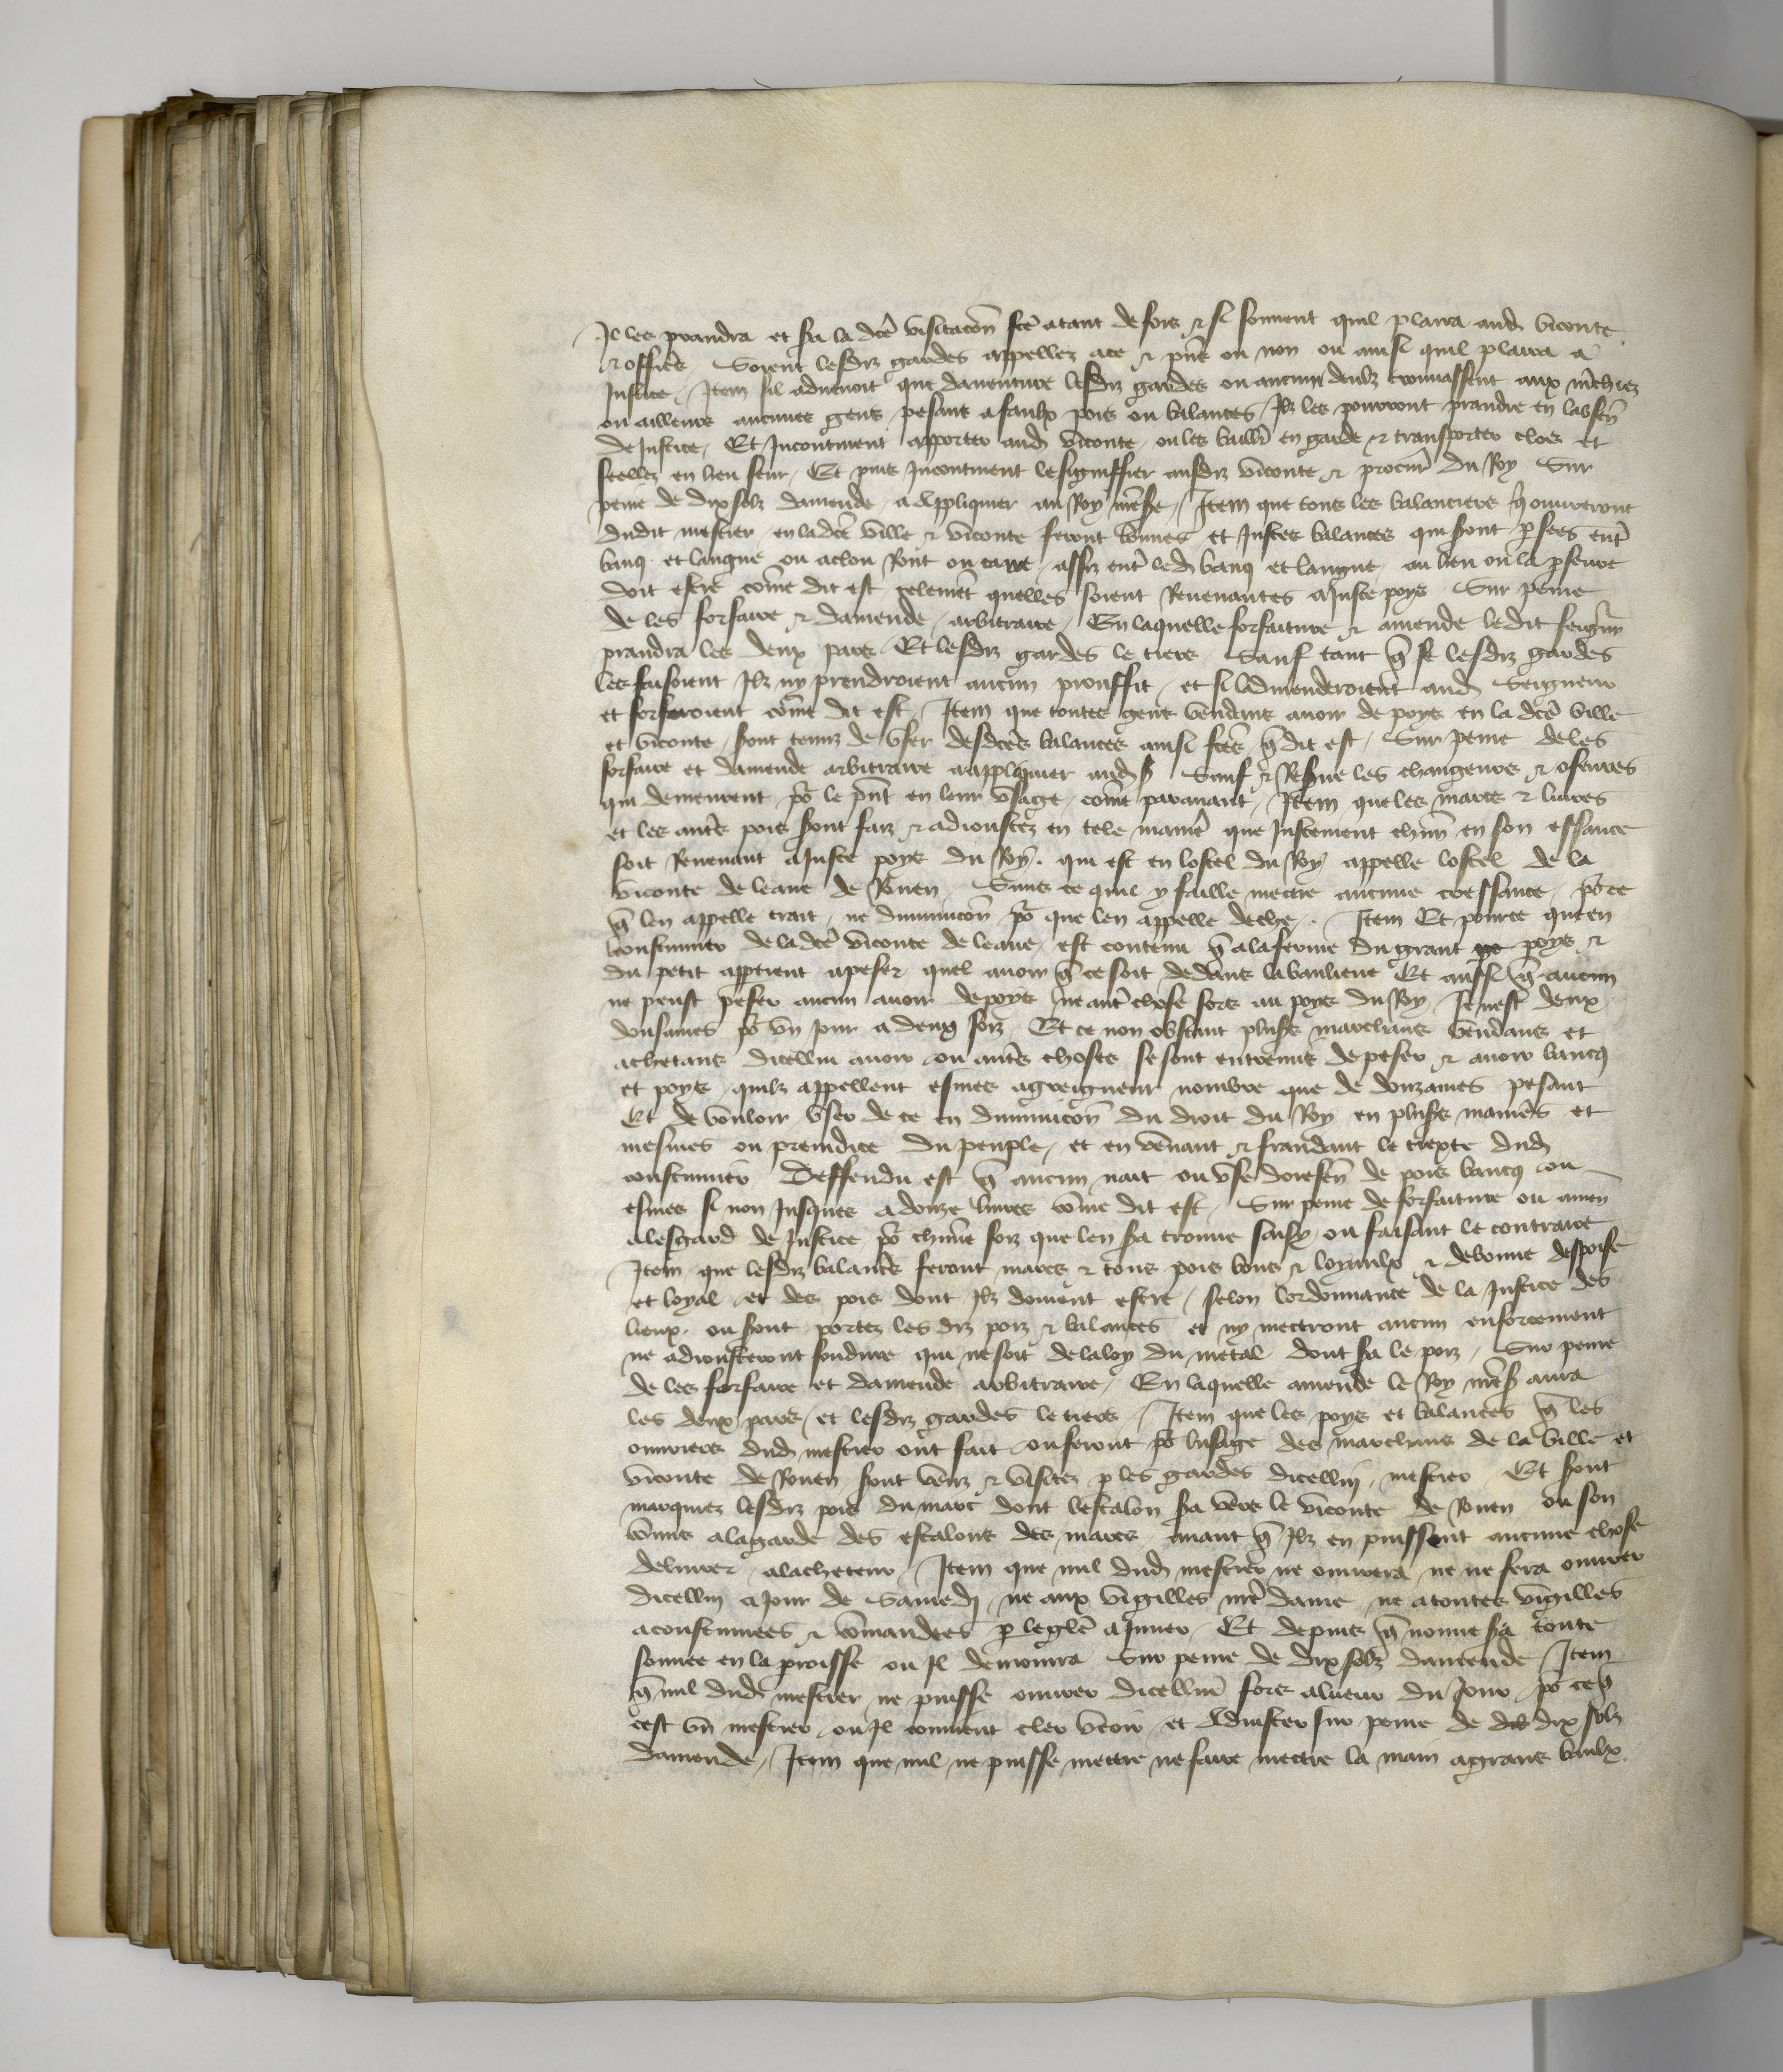 Il les prandra et sera la dce visitacon fce atant de fois et si souvent quil plaira aud viconte
et offices Soient lesdiz gardes appellez ace et pnt ou non ou ainsi quil plaira a
Justice / Item sil advenoit que daventure lesdiz gardes ou aucuns deulx trouvassent aux mchiez
ou ailleurs aucunes gens pesans a faulx pois ou balances Ilz les pourront prandre en labsen
de Justice / Et Incontinent apporter aud viconte ou les baill en garde et transporter clos et
scellez en lieu seur / Et puis Incontinent le signiffier ausdiz viconte et procur du Roy Sur
peine de dix solz damende a appliquer au Roy / Item que tous les balanciers q ouvreront
dudit mestier en la dce ville et viconte feront bonnes et Justes balances qui sont psees ent
banq et langue ou aclou Ront ou carre assiz ent led banq et langue au lieu ou la pseure
doit estre comme dit est telement quelles soient Revenantes a Juste poys Sur peine
de les forfaire et damende arbitraire / En laquelle forfaiture et amende ledit seigneur
prandra les deux pars Et lesdiz gardes le tiers Sauf tant q se lesdiz gardes
les faisoient Ilz ny prendroient aucun prouffit et si ladmenderoient aud Seigneur
et forferoient come dit est / Item que toutes gens vendans avoir de poys en la dce ville
et viconte sont tenuz de user desdces balances ainsi fces q dit est / Sur peine de les
forfaire et damende arbitraire a appliquer aud Sauf et Reserve les changeurs et ofeures
qui demeurent po le pnt en leur usage come paravant / Item que les marcs et livres
et les auts pois sont faiz et adjoustez en tele manie que Justement chun en son essance
soit Revenant a Juste poys du Roy qui est en lostel du Roy appelle lostel de la
viconte de leaue de Rouen Sans ce quil y faille mectre aucune croessance po ce
q len appelle trait ne diminucon po que len appelle deche . Item Et pource quen
coustumier de la dce viconte de leaue est contenu q a la ferme du grant poys et
du petit apptient a peser quel avoir q ce soit dedans la banlieue Et aussi q aucun
ne peust peser aucun avoir de poys ne aut chose fors au poys du Roy Se nest deux
dousaines po un Jour a deux foiz Et ce non obstant pluss marchans vendans et
achetans dicellui avoir ou auts choses se sont entremis de peser et avoir bancqs
et poys quilz appellent esmes agreigneur nombre que de douzaines pesant
Et de vouloir user de ce en diminucon du droit du Roy en pluss manies et
mesmes ou preiudice du peuple et en venant et fraudant le texte dud
coustumier Deffendu est q aucun nait ou use doresen de pois bancqs ou
esmes si non Jusques a douze livres come dit est / Sur peine de forfaiture ou amen
a lesgard de Justice po chune foiz que len sera trouve saisy ou faisant le contraire
Item que lesdiz balancs feront marcs et tous pois bons et loyaulx et de bonne despoise
et loyal et des pois dont Ilz doivent estre selon lordonnance de la Justice des
lieux ou sont portez les diz poiz et balances et ny mectront aucun enforcement
ne adjousteront souduire qui ne soit de la loy du metal dont sera le poiz / Sur peine
de les forfaire et damende arbitraire / En laquelle amende le Roy aura
les deux pars et lesdiz gardes le tiers / Item que les poys et balances q les
ouvriers dud mestier ont fait ou feront po lusage des marchans de la ville et
viconte de Rouen sont venz et visitez p les gardes dicellui mestier Et sont
marquiez lesdiz pois du marc dont lestalon sera vers le viconte de Rouen ou son
commis a la garde des estalons des marcs avant q Ilz en puissent aucune chose
delivrer a lacheteur Item que nul dud mestier ne ouvrera ne ne fera ouvrer
dicellui a Jour de Samedi ne aux vigilles nre dame ne a toutes vigilles
acoustumees et comandees p leglise a Juner Et depuis q nonne sera toute
sonnee en la proisse ou Il demoura Sur peine de dix solz damende Item
q nul dud mestier ne puisse ouvrer dicellui fors a lueur du Jour po ce q
cest un mestier ou Il convient cler veoir et adjuster sur peine de dix solz
damende / Item que nul ne puisse mettre ne faire mettre la main a grans baulx